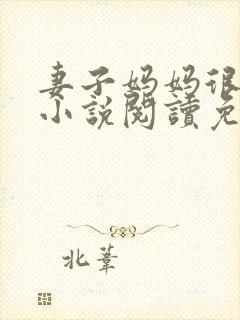 妻子妈妈很
小説閱讀免
北葦